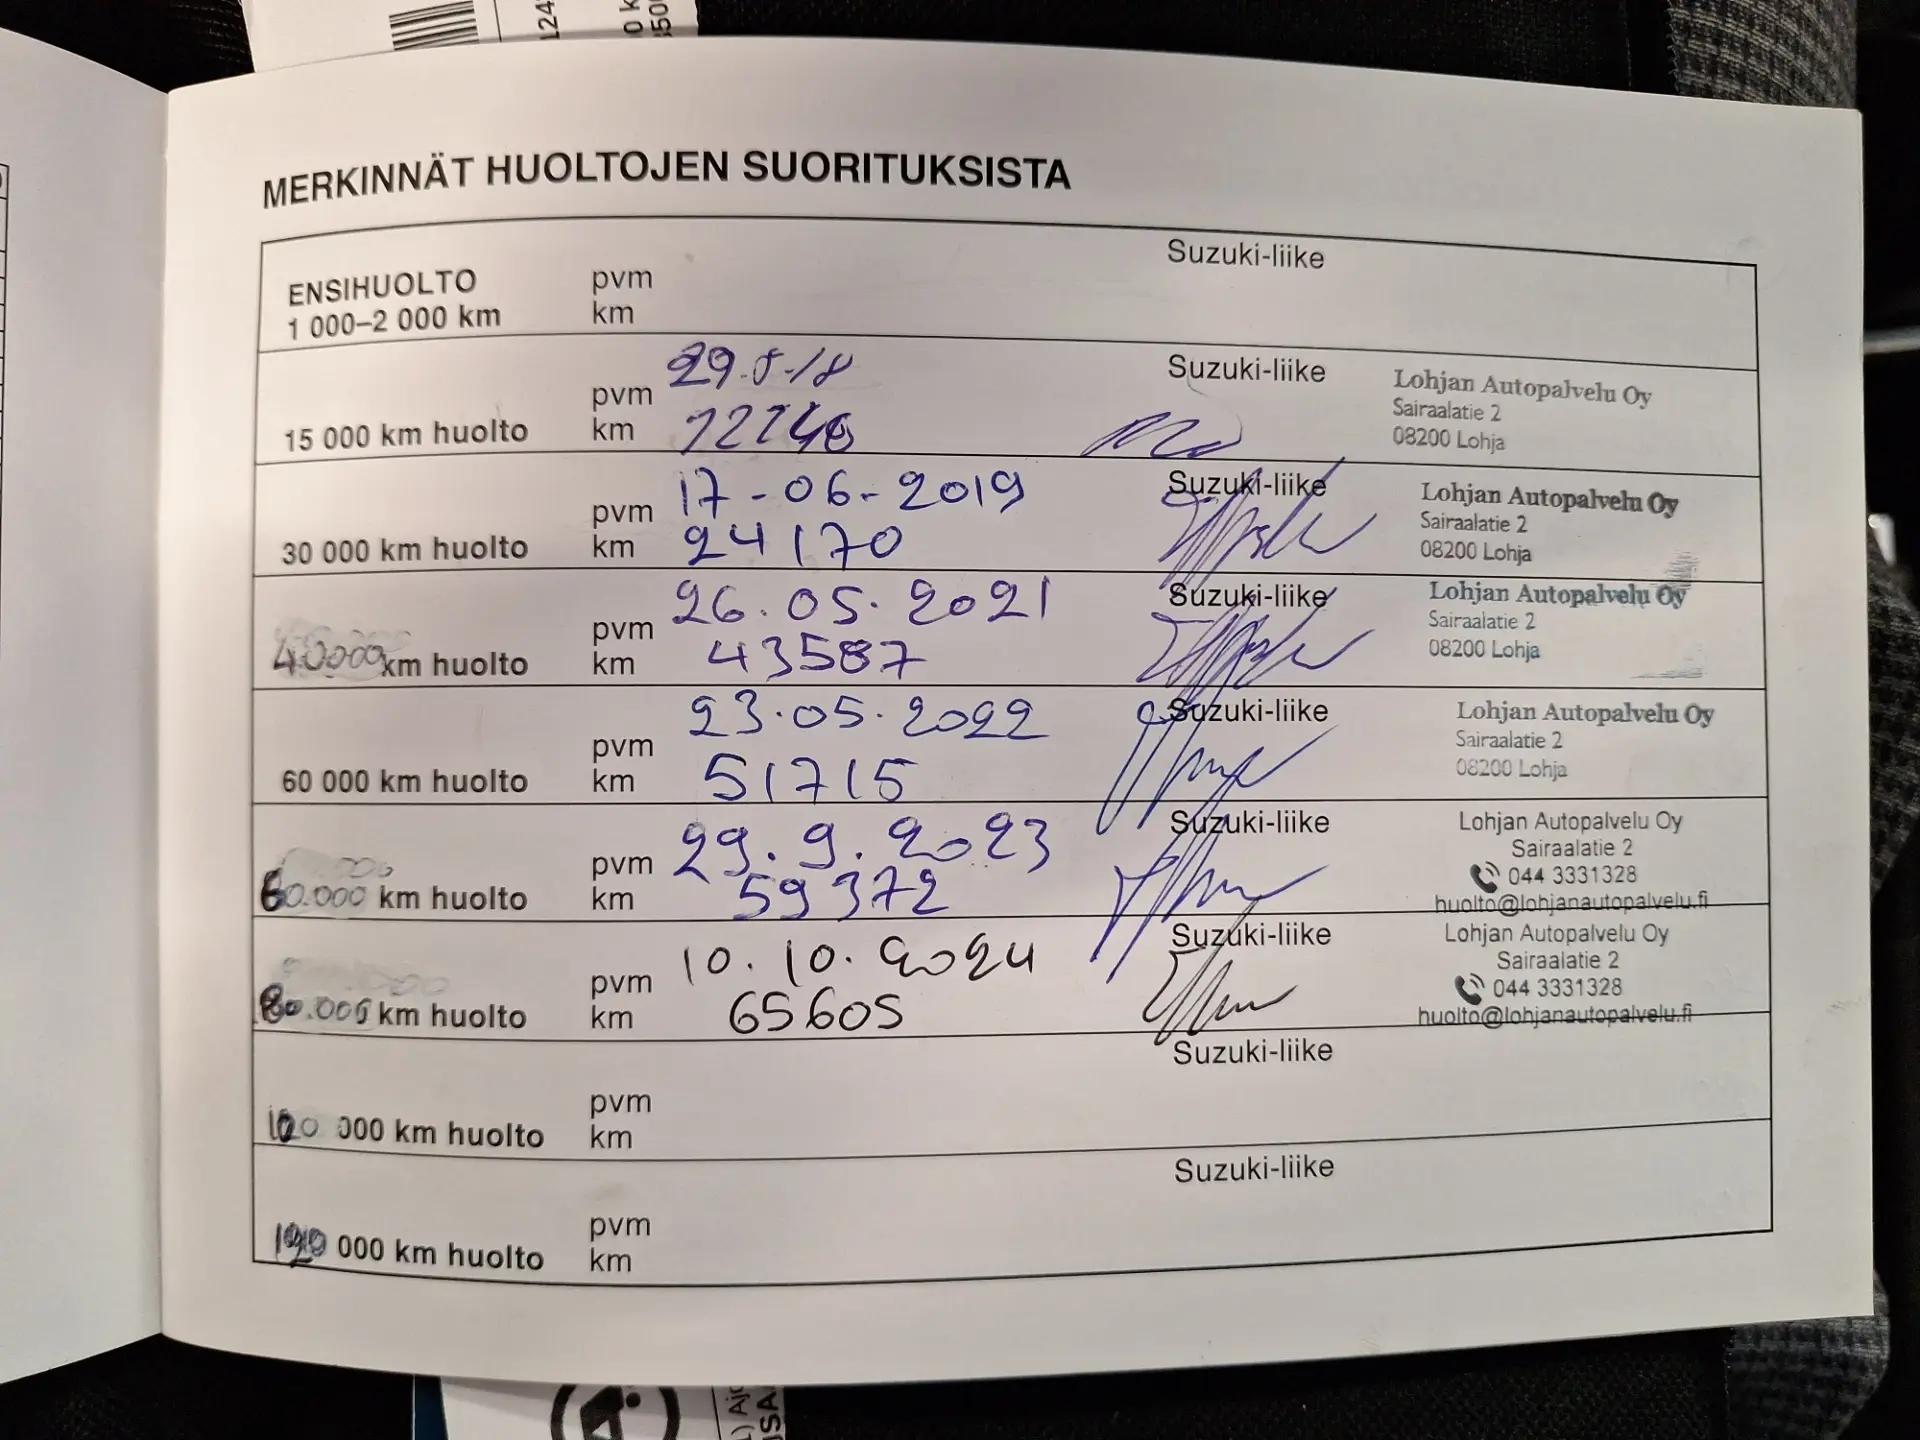 MERKINNÄT HUOLTOJEN SUORITUKSISTA
ENSIHUOLTO
1 000–2 000 km
pvm
km
Suzuki-liike
15 000 km huolto
pvm 29.5.18
km
Suzuki-liike
Lohjan Autopalvelu Oy
Sairaalatie 2
08200 Lohja
30 000 km huolto
pvm 17-06-2019
km 24170
Suzuki-liike
Lohjan Autopalvelu Oy
Sairaalatie 2
08200 Lohja
40000 km huolto
pvm 26.05.2021
km 43587
Suzuki-liike
Lohjan Autopalvelu Oy
Sairaalatie 2
08200 Lohja
60 000 km huolto
pvm 23.05.2022
km 51715
Suzuki-liike
Lohjan Autopalvelu Oy
Sairaalatie 2
08200 Lohja
60.000 km huolto
pvm 29.9.2023
km 59372
Suzuki-liike
Lohjan Autopalvelu Oy
Sairaalatie 2
044 3331328
huolto@lohjanautopalvelu.fi
80.000 km huolto
pvm 10.10.2024
km 65605
Suzuki-liike
Lohjan Autopalvelu Oy
Sairaalatie 2
044 3331328
huolto@lohjanautopalvelu.fi
000 km huolto
pvm
km
Suzuki-liike
000 km huolto
pvm
km
Suzuki-liike